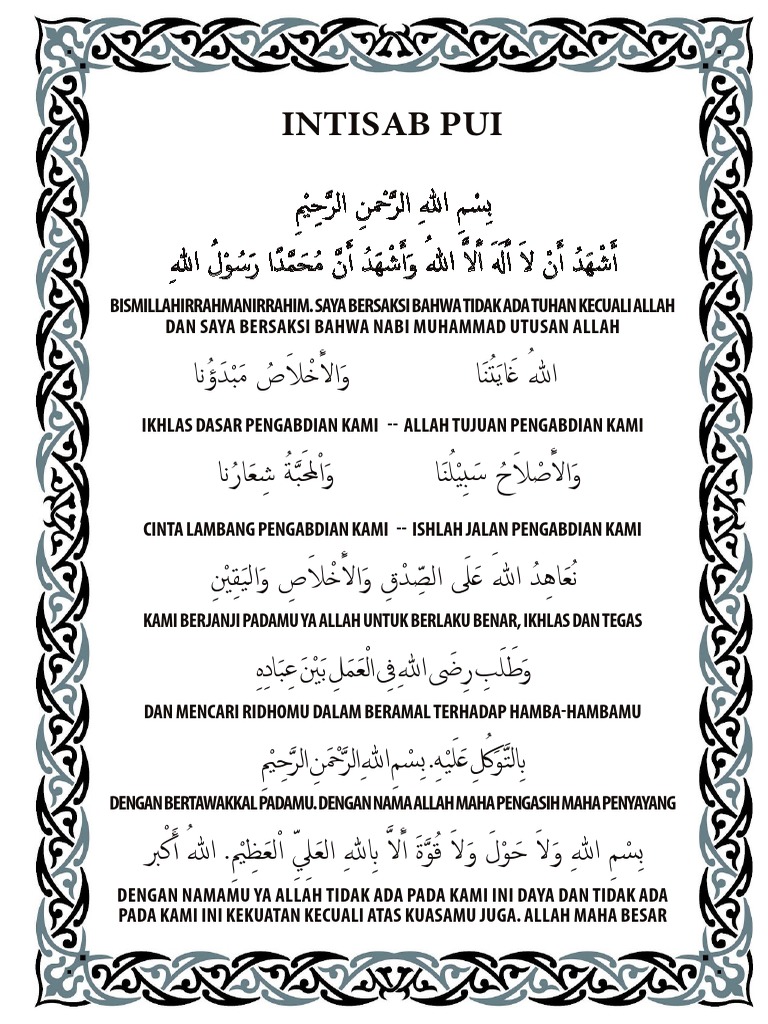 INTISAB PUI
بِسْمِ اللهِ الرَّحْمنِ الرَّحِيْمِ
أَشْهَدُ أَنْ لاَ أَلَهَ أَلاَّ اللهُ وَأَشْهَدُ أَنَّ مُحَمَّدًا رَسُوْلُ اللهِ
BISMILLAHIRRAHMANIRRAHIM. SAYA BERSAKSI BAHWA TIDAK ADA TUHAN KECUALI ALLAH
DAN SAYA BERSAKSI BAHWA NABI MUHAMMAD UTUSAN ALLAH
اللهُ غَايَتُنَا وَالأَخْلاَصُ مَبْدَؤُنا
IKHLAS DASAR PENGABDIAN KAMI -- ALLAH TUJUAN PENGABDIAN KAMI
وَالأَصْلاَحُ سَبِيْلُنَا وَالْمَحَبَّةُ شِعَارُنا
CINTA LAMBANG PENGABDIAN KAMI -- ISHLAH JALAN PENGABDIAN KAMI
نُعَاهِدُ اللهَ عَلَى الصِّدْقِ وَالأَخْلاَصِ وَاليَقِيْنِ
KAMI BERJANJI PADAMU YA ALLAH UNTUK BERLAKU BENAR, IKHLAS DAN TEGAS
وَطَلَبِ رِضَى اللهِ فِى الْعَمَلِ بَيْنَ عِبَادِهِ
DAN MENCARI RIDHOMU DALAM BERAMAL TERHADAP HAMBA-HAMBAMU
بِالتَّوَكُلِ عَلَيْهِ. بِسْمِ اللهِ الرَّحْمَنِ الرَّحِيْمِ
DENGAN BERTAWAKKAL PADAMU. DENGAN NAMA ALLAH MAHA PENGASIH MAHA PENYAYANG
بِسْمِ اللهِ وَلاَ حَوْلَ وَلاَ قُوَّةَ أَلاَّ بِاللهِ العَلِيِّ الْعَظِيْمِ. اللهُ أَكْبر
DENGAN NAMAMU YA ALLAH TIDAK ADA PADA KAMI INI DAYA DAN TIDAK ADA
PADA KAMI INI KEKUATAN KECUALI ATAS KUASAMU JUGA. ALLAH MAHA BESAR